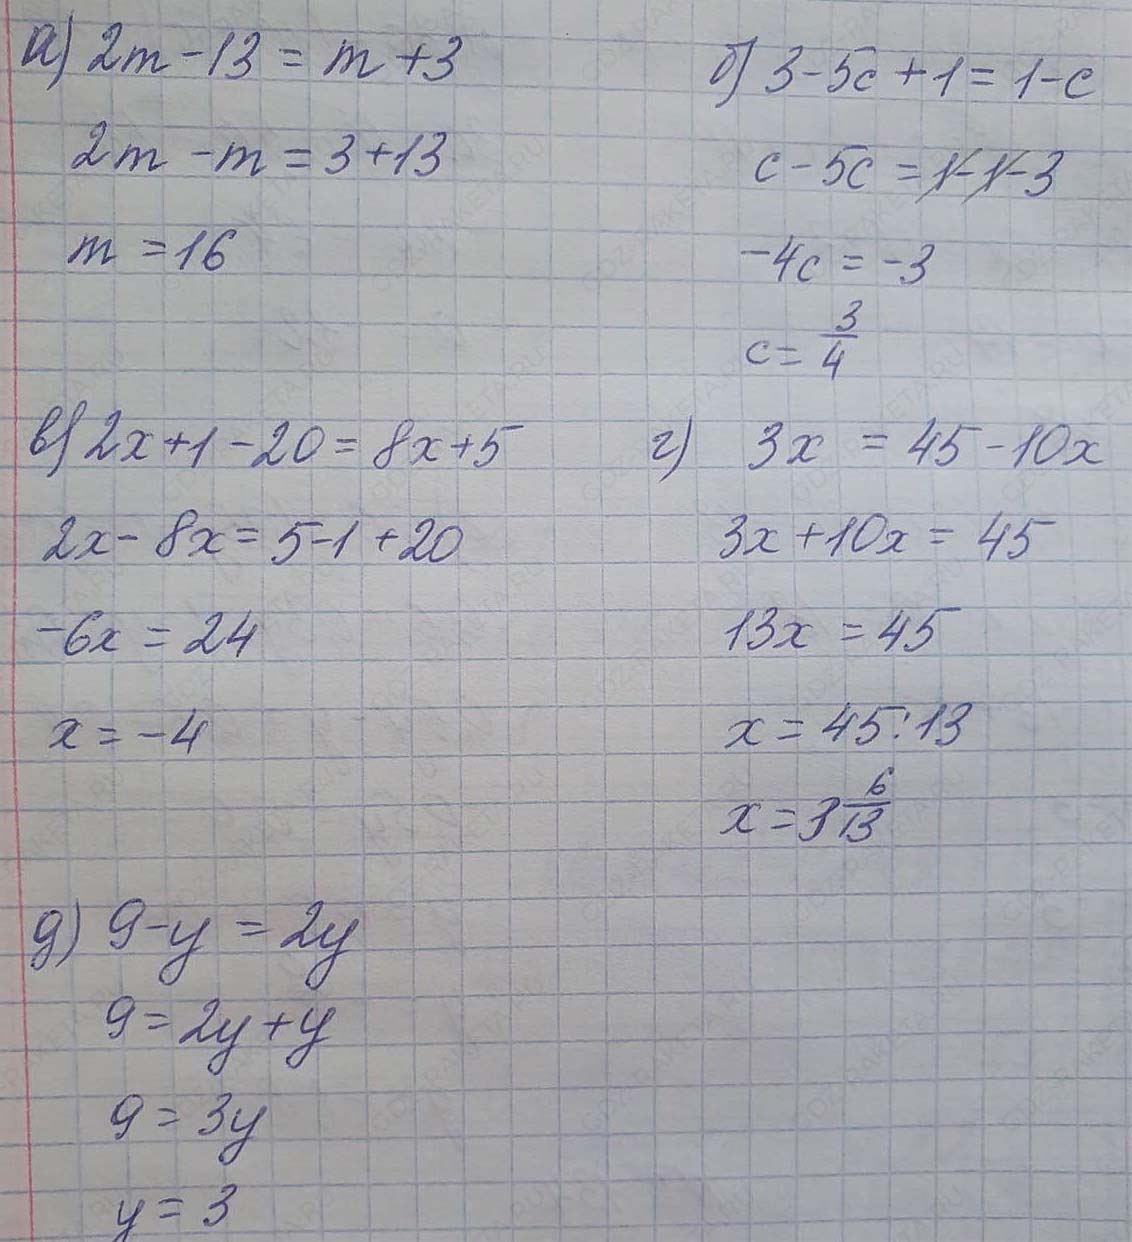 а) 2m - 13 = m + 3
2m - m = 3 + 13
m = 16
б) 3 - 5c + 1 = 1 - c
c - 5c = 1 - 1 - 3
-4c = -3
c = 3/4
в) 2x + 1 - 20 = 8x + 5
2x - 8x = 5 - 1 + 20
-6x = 24
x = -4
г) 3x = 45 - 10x
3x + 10x = 45
13x = 45
x = 45 : 13
x = 3 6/13
д) 9 - y = 2y
9 = 2y + y
9 = 3y
y = 3